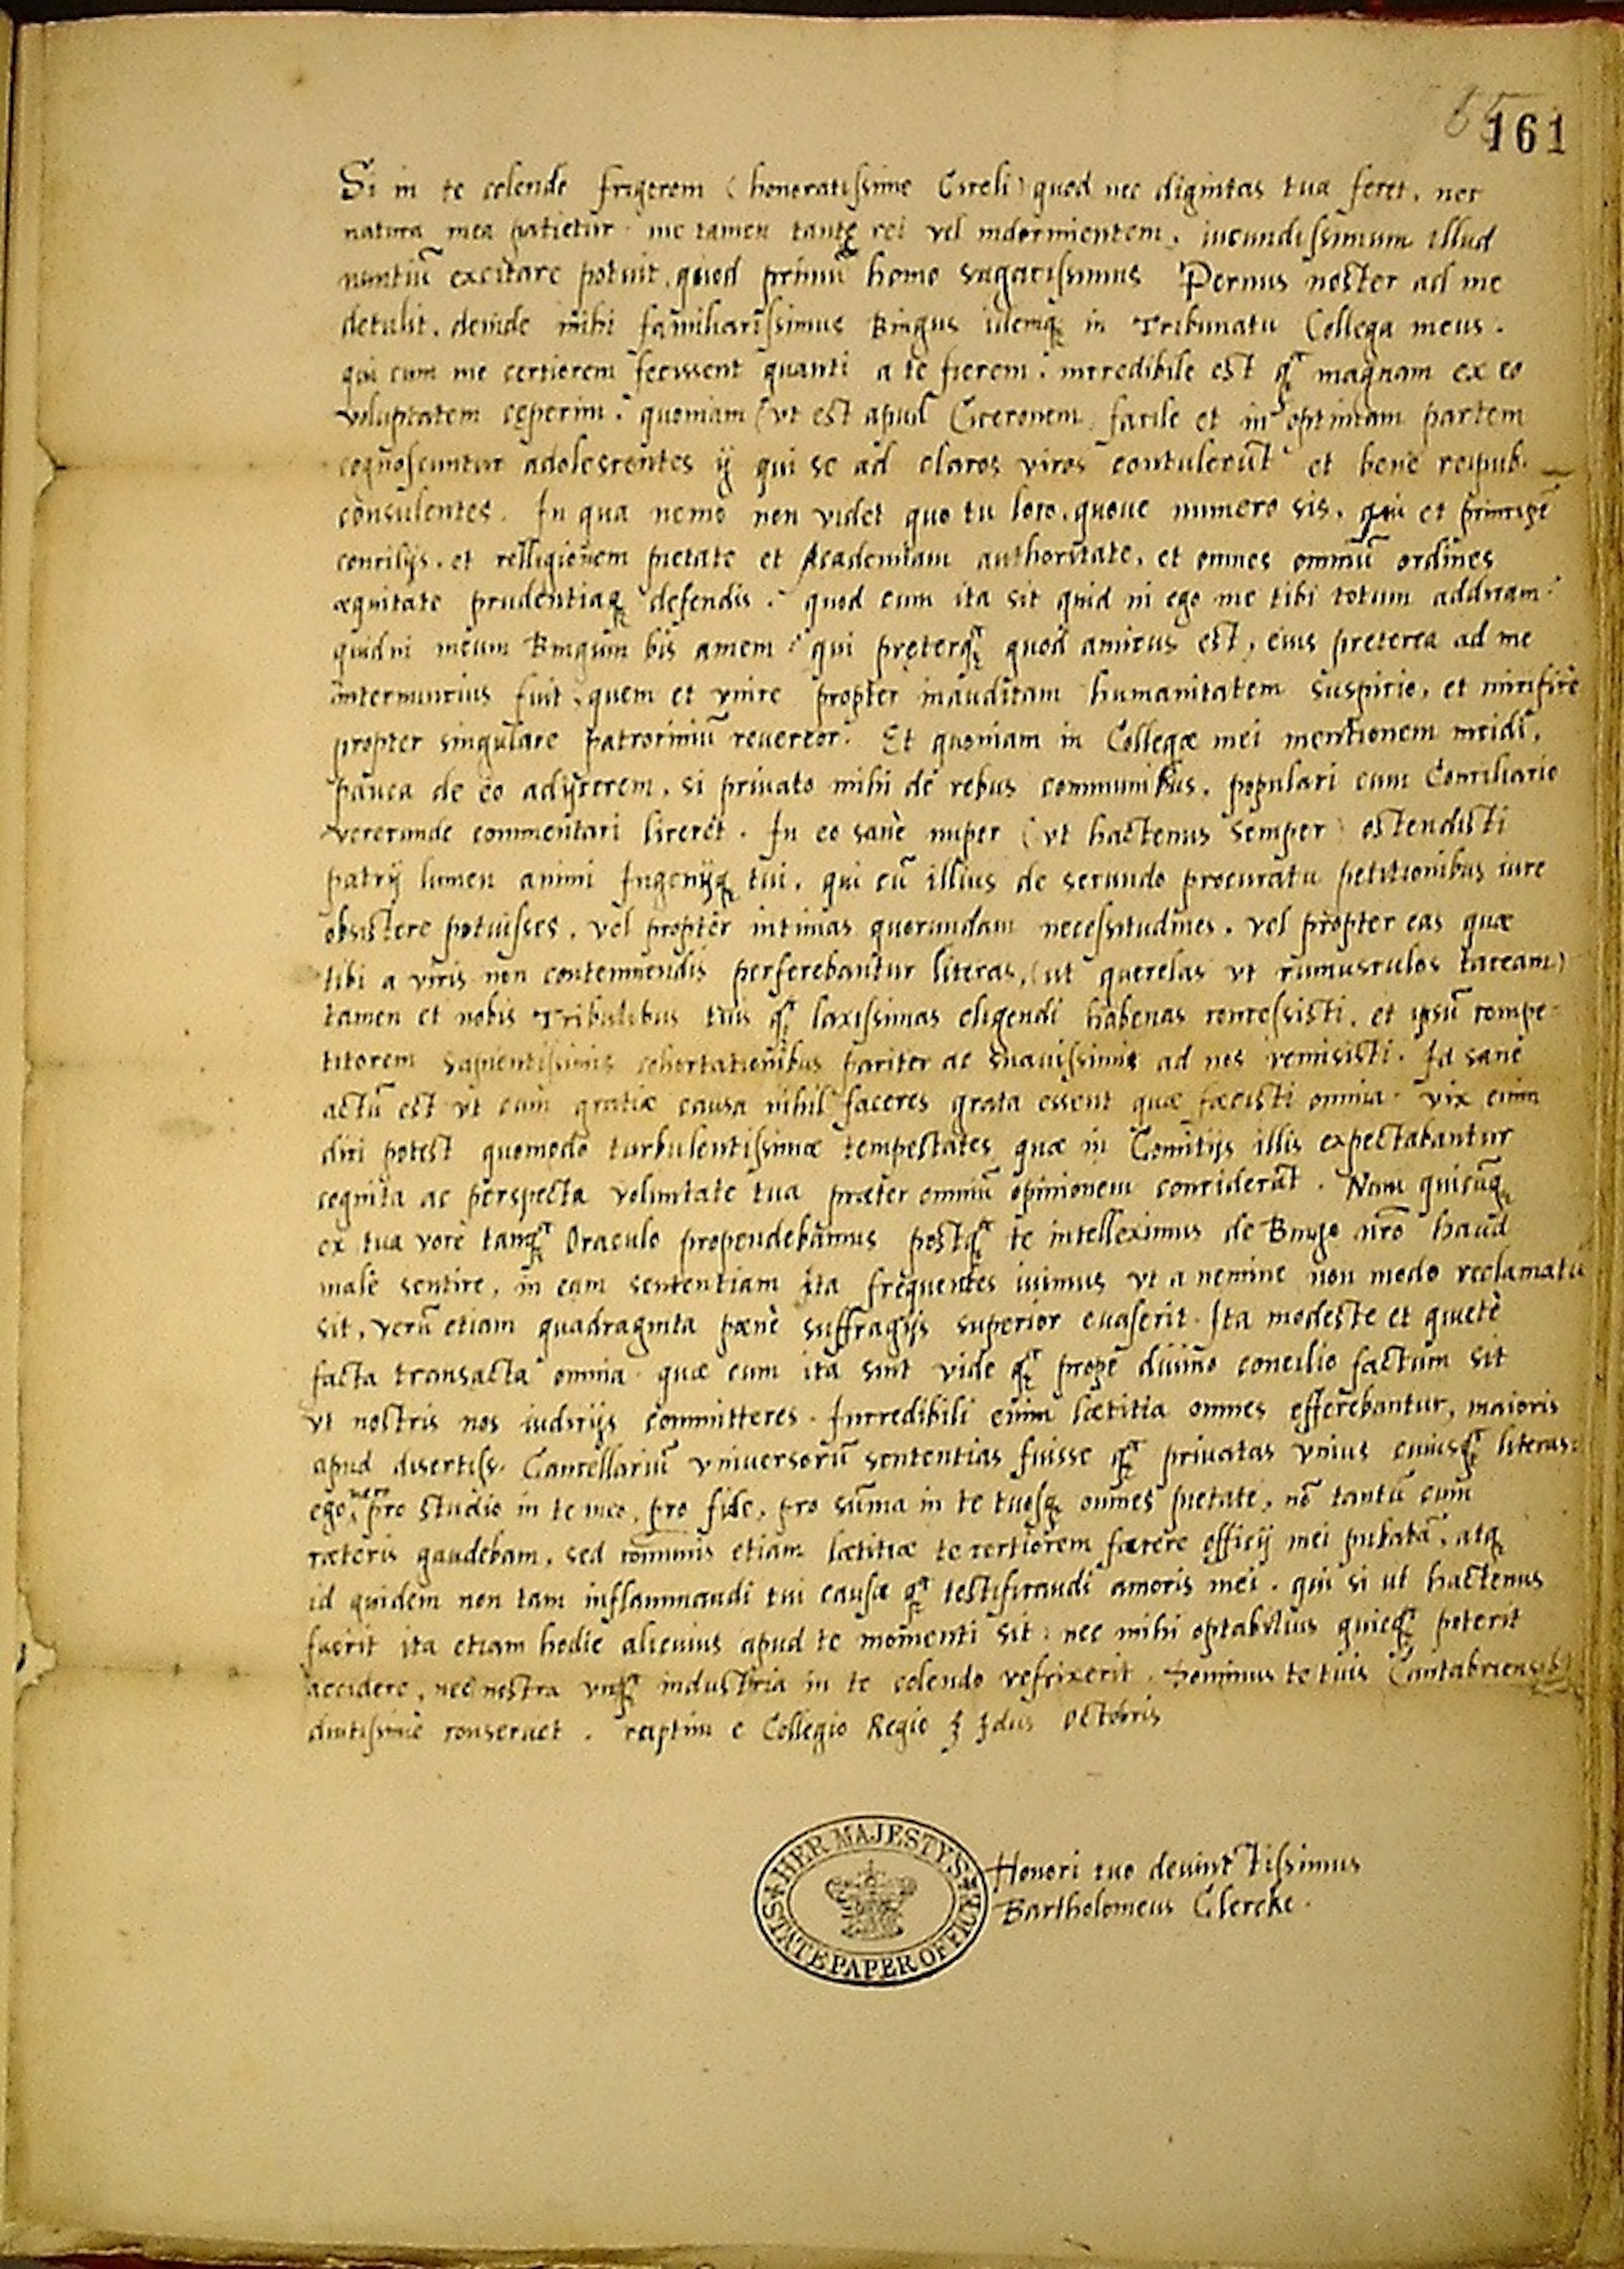 161
Si in te colendo frigerem (honoratissime Ciceli) quod nec dignitas tua feret, nec
natura mea patietur me tamen tantę rei vel indormientem, iucundissimum illud
nuntiū excitare potuit, quod primū homo sagacissimus Pernus noster ad me
detulit, deinde mihi familiarissimus Bingus idemq́ in Tribunatu Collega meus.
qui cum me certiorem fecissent quanti a te fierem, incredibile est q̃ magnam ex eo
voluptatem cęperim. quoniam (vt est apud Ciceronem) facile et in optimam partem
cognoscuntur adolescentes ij qui se ad claros viros contulerūt et bene reipub.
consulentes. In qua nemo non videt quo tu loco, quoue numero sis, qui et principē
concilijs, et relligionem pietate et Academiam authoritate, et omnes omniū ordines
æquitate prudentiaq́ defendis. quod cum ita sit quid ni ego me tibi totum addicam?
quidni meum Bingum bis amem? qui pręterq̃ quod amicus est, eius preterea ad me
internuncius fuit, quem et vnice propter inauditam humanitatem suspicio, et mirifice
propter singulare patrociniū reuereor. Et quoniam in Collegæ mei mentionem incidi,
pauca de eo adijcerem, si priuato mihi de rebus communibus, populari cum Consiliario
verecunde commentari liceret. In eo sanè nuper (vt hactenus semper) ostendisti
patrij lumen animi Ingenijq́ tui, qui cū illius de secundo procuratu petitionibus iure
obsistere potuisses, vel propter intimas quorundam necessitudines, vel propter eas quæ
tibi a viris non contemnendis perferebantur literas, (ut querelas vt rumusculos taceam)
tamen et nobis Tribulibus tuis q̃ laxissimas eligendi habenas concessisti, et ipsū compe-
titorem sapientissimis cohortationibus pariter ac suauissimis ad nos remisisti. Id sanè
actū est vt cum gratiæ causa nihil faceres grata essent quæ fæcisti omnia. vix enim
dici potest quomodo turbulentissimæ tempestates quæ in Comitijs illis expectabantur
cognita ac perspecta voluntate tua præter omniū opinionem conciderāt. Nam quicūq́
ex tua voce tanq̃ Oraculo propendebamus postq̃ te intelleximus de Bingo nr̃o haud
malè sentire, in eam sententiam ita frequentes iuimus vt a nemine non modo reclamatū
sit, verū etiam quadraginta pænè suffragijs superior euaserit. Ita modeste et quietè
facta transacta omnia quæ cum ita sint vide q̃ prope diuino concilio factum sit
vt nostris nos iudicijs committeres. Incredibili enim lætitia omnes efferebantur, maioris
apud disertiss. Cancellariū vniuersorū sententias fuisse q̃ priuatas vnius cuiusq̃ literas:
ego vero pro studio in te meo, pro fide, pro sūma in te tuosq́ omnes pietate, nō tantū cum
cæteris gaudebam, sed communis etiam lætitiæ te certiorem facere officij mei putabā, atq́
id quidem non tam inflammandi tui causæ q̃ testificandi amoris mei. qui si ut hactenus
fuerit ita etiam hodie alicuius apud te momenti sit: nec mihi optabilius quicq̃ poterit
accidere, nec nostra vnq̃ industria in te colendo refrixerit. Dominus te tuis Cantabriensib.
diutissime conseruet. raptim e Collegio Regio Idus Octobris
Honori tuo deuinctissimus
Bartholomeus Clercke.
HER MAJESTY'S STATE PAPER OFFICE